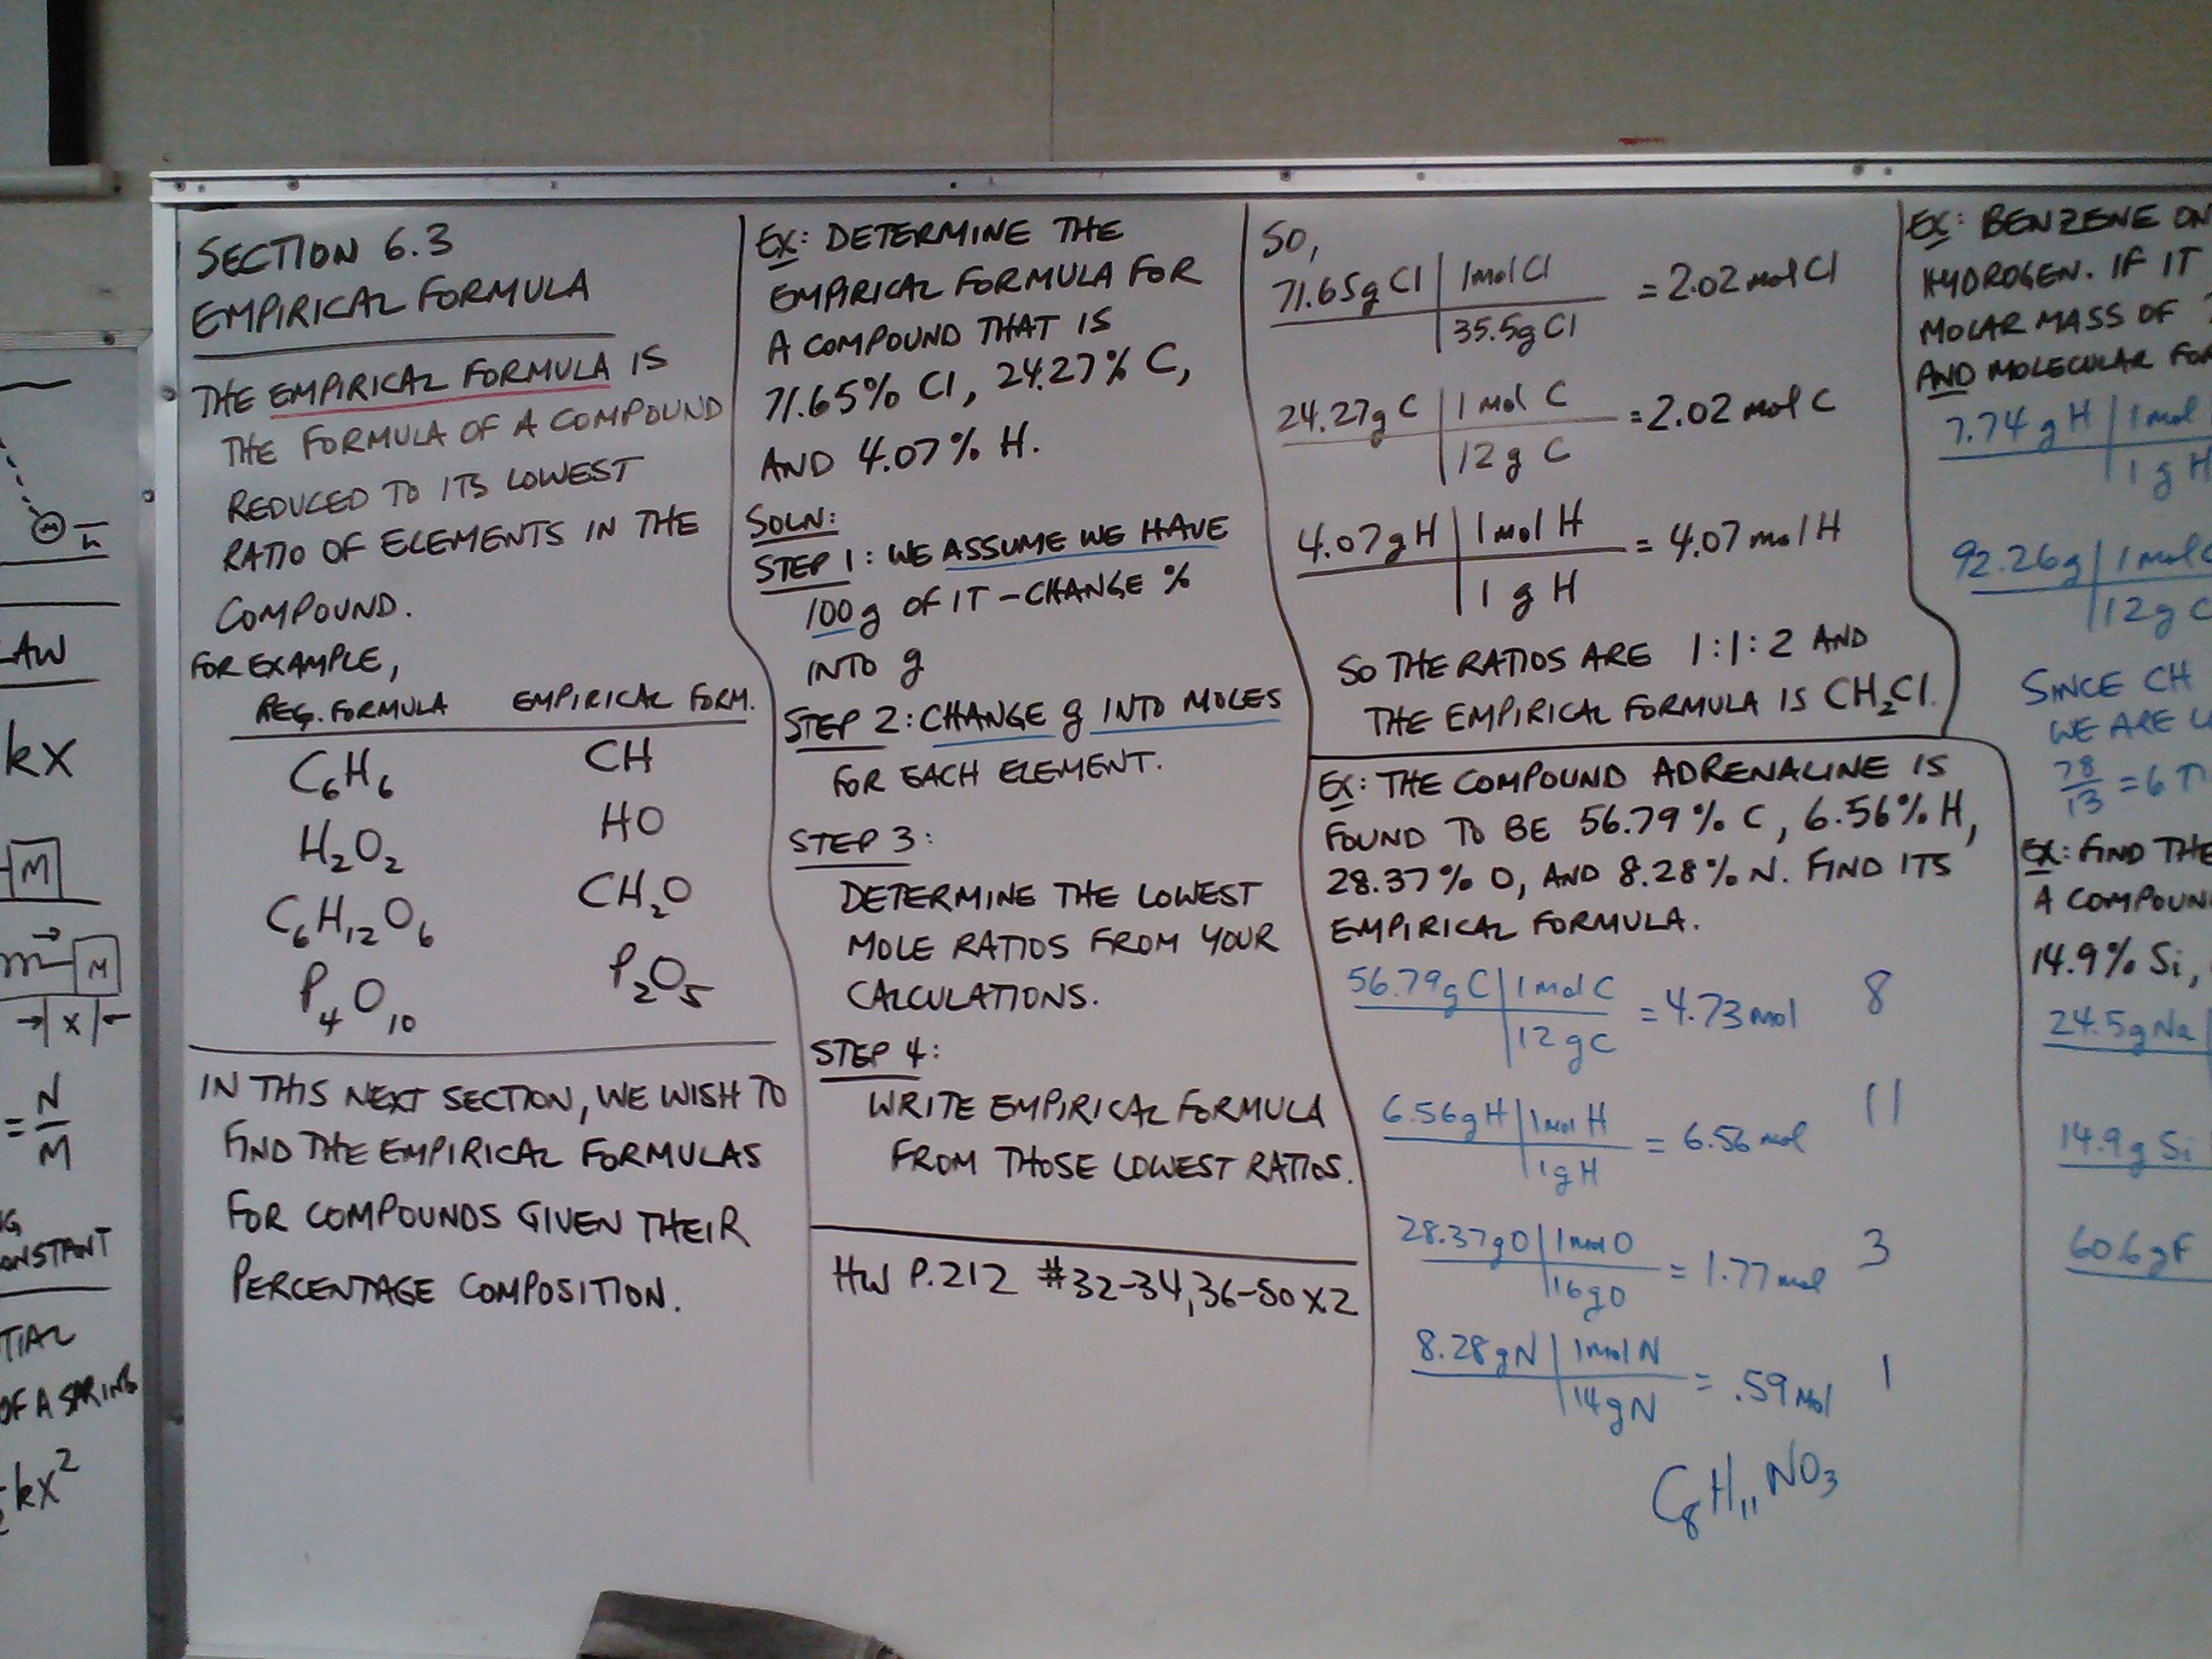 SECTION 6.3
EMPIRICAL FORMULA
THE EMPIRICAL FORMULA IS
THE FORMULA OF A COMPOUND
REDUCED TO ITS LOWEST
RATIO OF ELEMENTS IN THE
COMPOUND.
FOR EXAMPLE,
REG. FORMULA EMPIRICAL FORM.
C₆H₆ CH
H₂O₂ HO
C₆H₁₂O₆ CH₂O
P₄O₁₀ P₂O₅
IN THIS NEXT SECTION, WE WISH TO
FIND THE EMPIRICAL FORMULAS
FOR COMPOUNDS GIVEN THEIR
PERCENTAGE COMPOSITION.
EX: DETERMINE THE
EMPIRICAL FORMULA FOR
A COMPOUND THAT IS
71.65% Cl, 24.27% C,
AND 4.07% H.
SOLN:
STEP 1: WE ASSUME WE HAVE
100g OF IT - CHANGE %
INTO g
STEP 2: CHANGE g INTO MOLES
FOR EACH ELEMENT.
STEP 3:
DETERMINE THE LOWEST
MOLE RATIOS FROM YOUR
CALCULATIONS.
STEP 4:
WRITE EMPIRICAL FORMULA
FROM THOSE LOWEST RATIOS.
HW P.212 #32-34, 36-50 x2
SO,
71.65g Cl | 1mol Cl = 2.02 mol Cl
35.5g Cl
24.27g C | 1 mol C = 2.02 mol C
12 g C
4.07g H | 1 mol H = 4.07 mol H
1 g H
SO THE RATIOS ARE 1:1:2 AND
THE EMPIRICAL FORMULA IS CH₂Cl.
EX: THE COMPOUND ADRENALINE IS
FOUND TO BE 56.79% C, 6.56% H,
28.37% O, AND 8.28% N. FIND ITS
EMPIRICAL FORMULA.
56.79g C | 1 mol C = 4.73 mol 8
12 g C
6.56g H | 1 mol H = 6.56 mol 11
1g H
28.37g O | 1 mol O = 1.77 mol 3
16g O
8.28g N | 1 mol N = .59 mol 1
14g N
C₈H₁₁NO₃
EX: BENZENE ON
HYDROGEN. IF IT
MOLAR MASS OF
AND MOLECULAR FOR
7.74 g H | 1 mol
1 g H
92.26g | 1 mol C
12g C
SINCE CH
WE ARE
78/13 = 6 TI
EX: FIND THE
A COMPOUN
14.9% Si,
24.5g Na
14.9g Si
60.6g F
LAW
kx
M
m M
x
= N/M
ONSTANT
TIAL
OF A SPRING
kx²